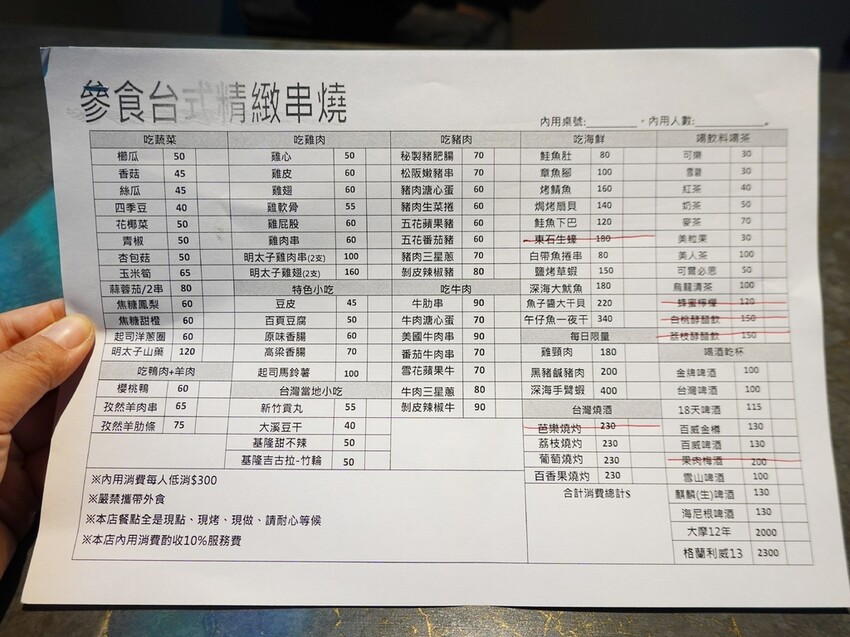 參食台式精緻串燒
內用桌號:________，內用人數:________。
吃蔬菜 吃雞肉 吃豬肉 吃海鮮 喝飲料喝茶
櫛瓜 50 雞心 50 秘製豬肥腸 70 鮭魚肚 80 可樂 30
香菇 45 雞皮 60 松阪嫩豬串 70 章魚腳 100 雪碧 30
絲瓜 45 雞翅 60 豬肉溏心蛋 60 烤鯖魚 160 紅茶 40
四季豆 40 雞軟骨 55 豬肉生菜捲 60 焗烤扇貝 140 奶茶 50
花椰菜 50 雞屁股 60 五花蘋果豬 60 鮭魚下巴 120 麥茶 70
青椒 50 雞肉串 60 五花番茄豬 60 東石生蠔 180 美粒果 30
杏包菇 50 明太子雞肉串(2支) 100 豬肉三星蔥 70 白帶魚捲串 80 美人茶 100
玉米筍 65 明太子雞翅(2支) 160 剝皮辣椒豬 80 鹽烤草蝦 150 可爾必思 50
蒜蓉茄/2串 80 特色小吃 吃牛肉 深海大魷魚 180 烏龍清茶 100
焦糖鳳梨 60 豆皮 45 牛肋串 90 魚子醬大干貝 220 蜂蜜檸檬 120
焦糖甜橙 60 百頁豆腐 50 牛肉溏心蛋 70 午仔魚一夜干 340 白桃酵醋飲 150
起司洋蔥圈 60 原味香腸 60 美國牛肉串 90 每日限量 荔枝酵醋飲 150
明太子山藥 120 高梁香腸 70 番茄牛肉串 70 雞頸肉 180 喝酒乾杯
吃鴨肉+羊肉 起司馬鈴薯 100 雪花蘋果牛 70 黑豬鹹豬肉 200 金牌啤酒 100
櫻桃鴨 60 台灣當地小吃 牛肉三星蔥 80 深海手臂蝦 400 台灣啤酒 100
孜然羊肉串 65 新竹貢丸 55 剝皮辣椒牛 90 台灣燒酒 18天啤酒 115
孜然羊肋條 75 大溪豆干 40 芭樂燒灼 230 百威金樽 130
基隆甜不辣 50 荔枝燒灼 230 百威啤酒 130
基隆吉古拉-竹輪 50 葡萄燒灼 230 果肉梅酒 200
※內用消費每人低消$300 百香果燒灼 230 雪山啤酒 100
※嚴禁攜帶外食 合計消費總計$ 麒麟(生)啤酒 130
※本店餐點全是現點、現烤、現做、請耐心等候 海尼根啤酒 130
※本店內用消費酌收10%服務費 大摩12年 2000
格蘭利威13 2300